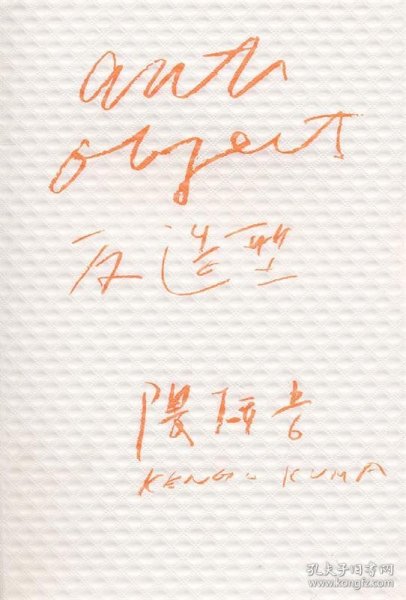 anti
object
反造型
隈研吾
KENGO KUMA
孔夫子旧书网